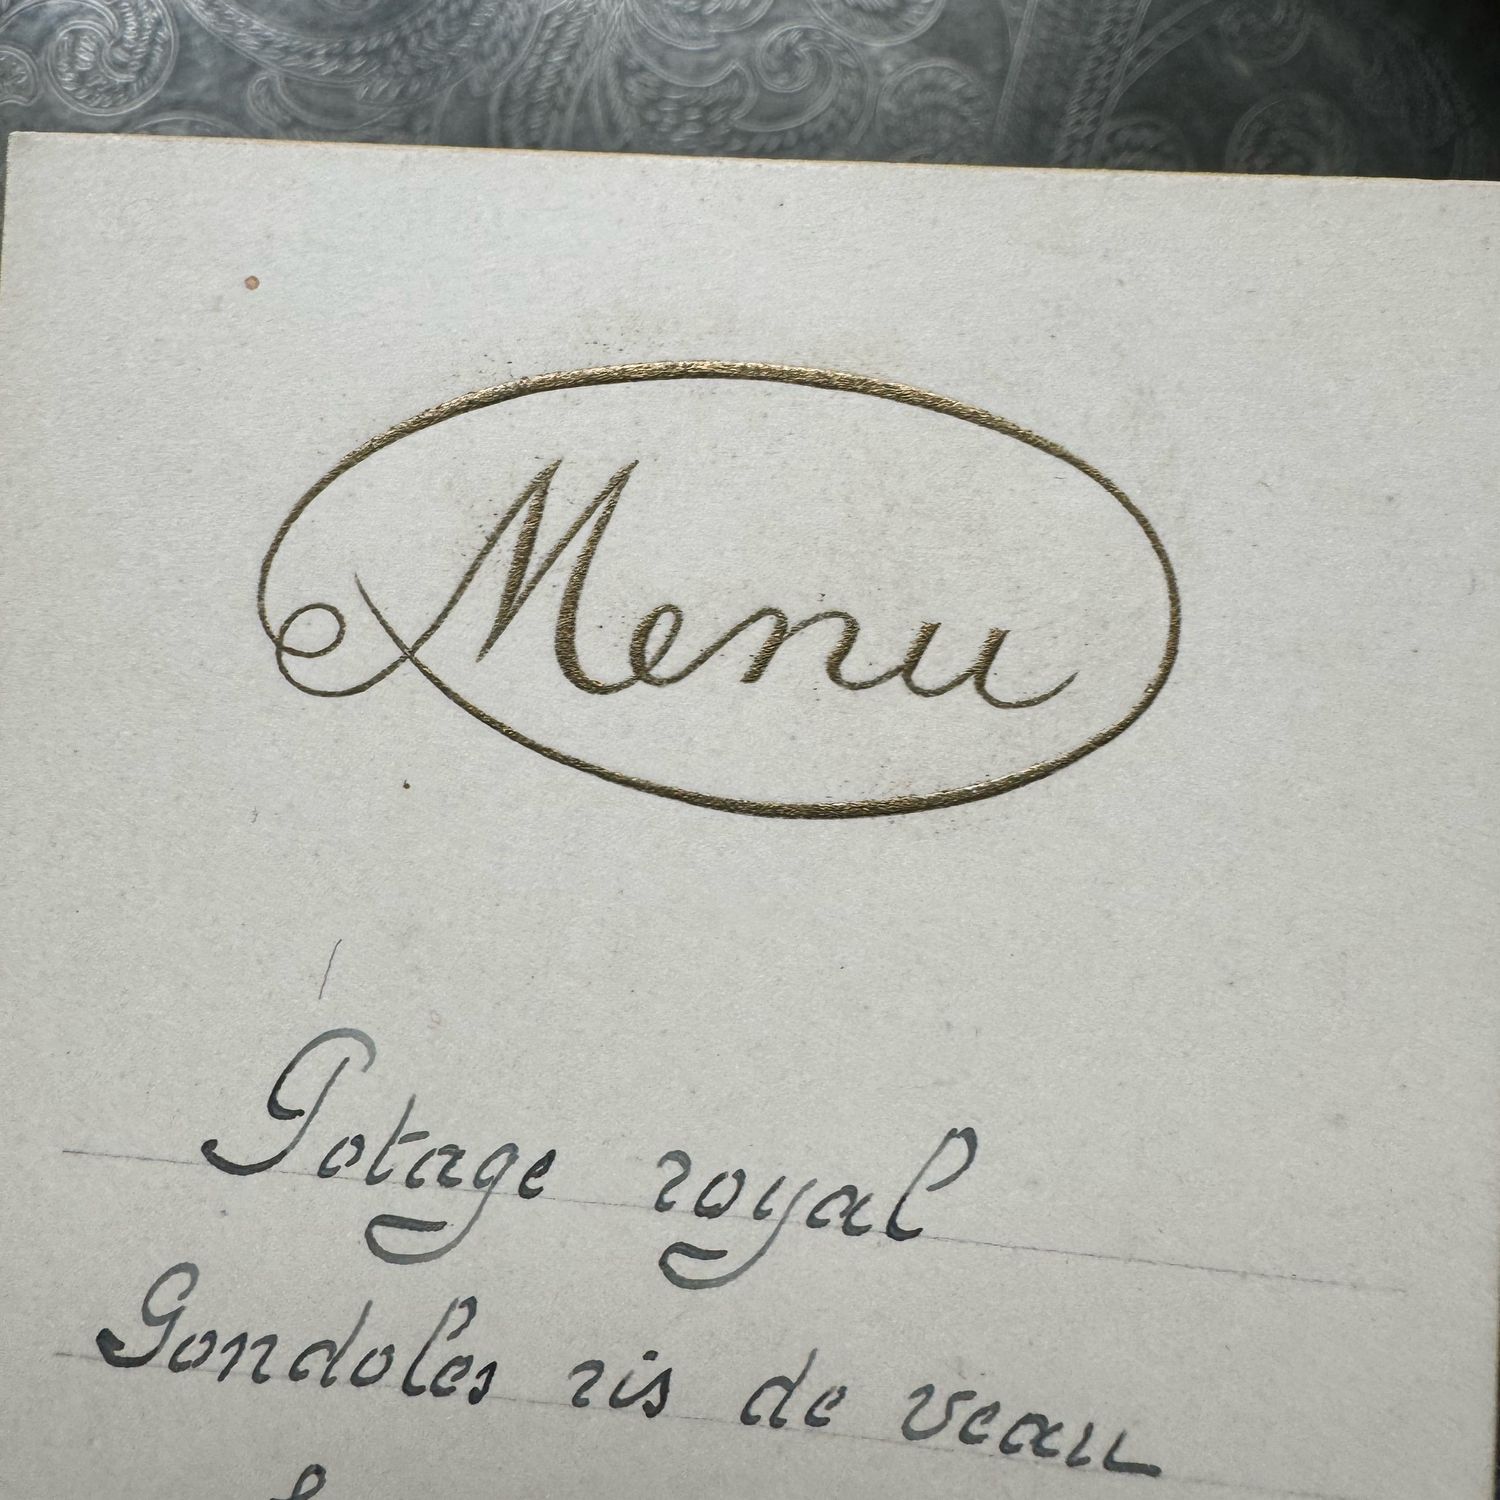 Menu
Potage royal
Gondoles ris de veau